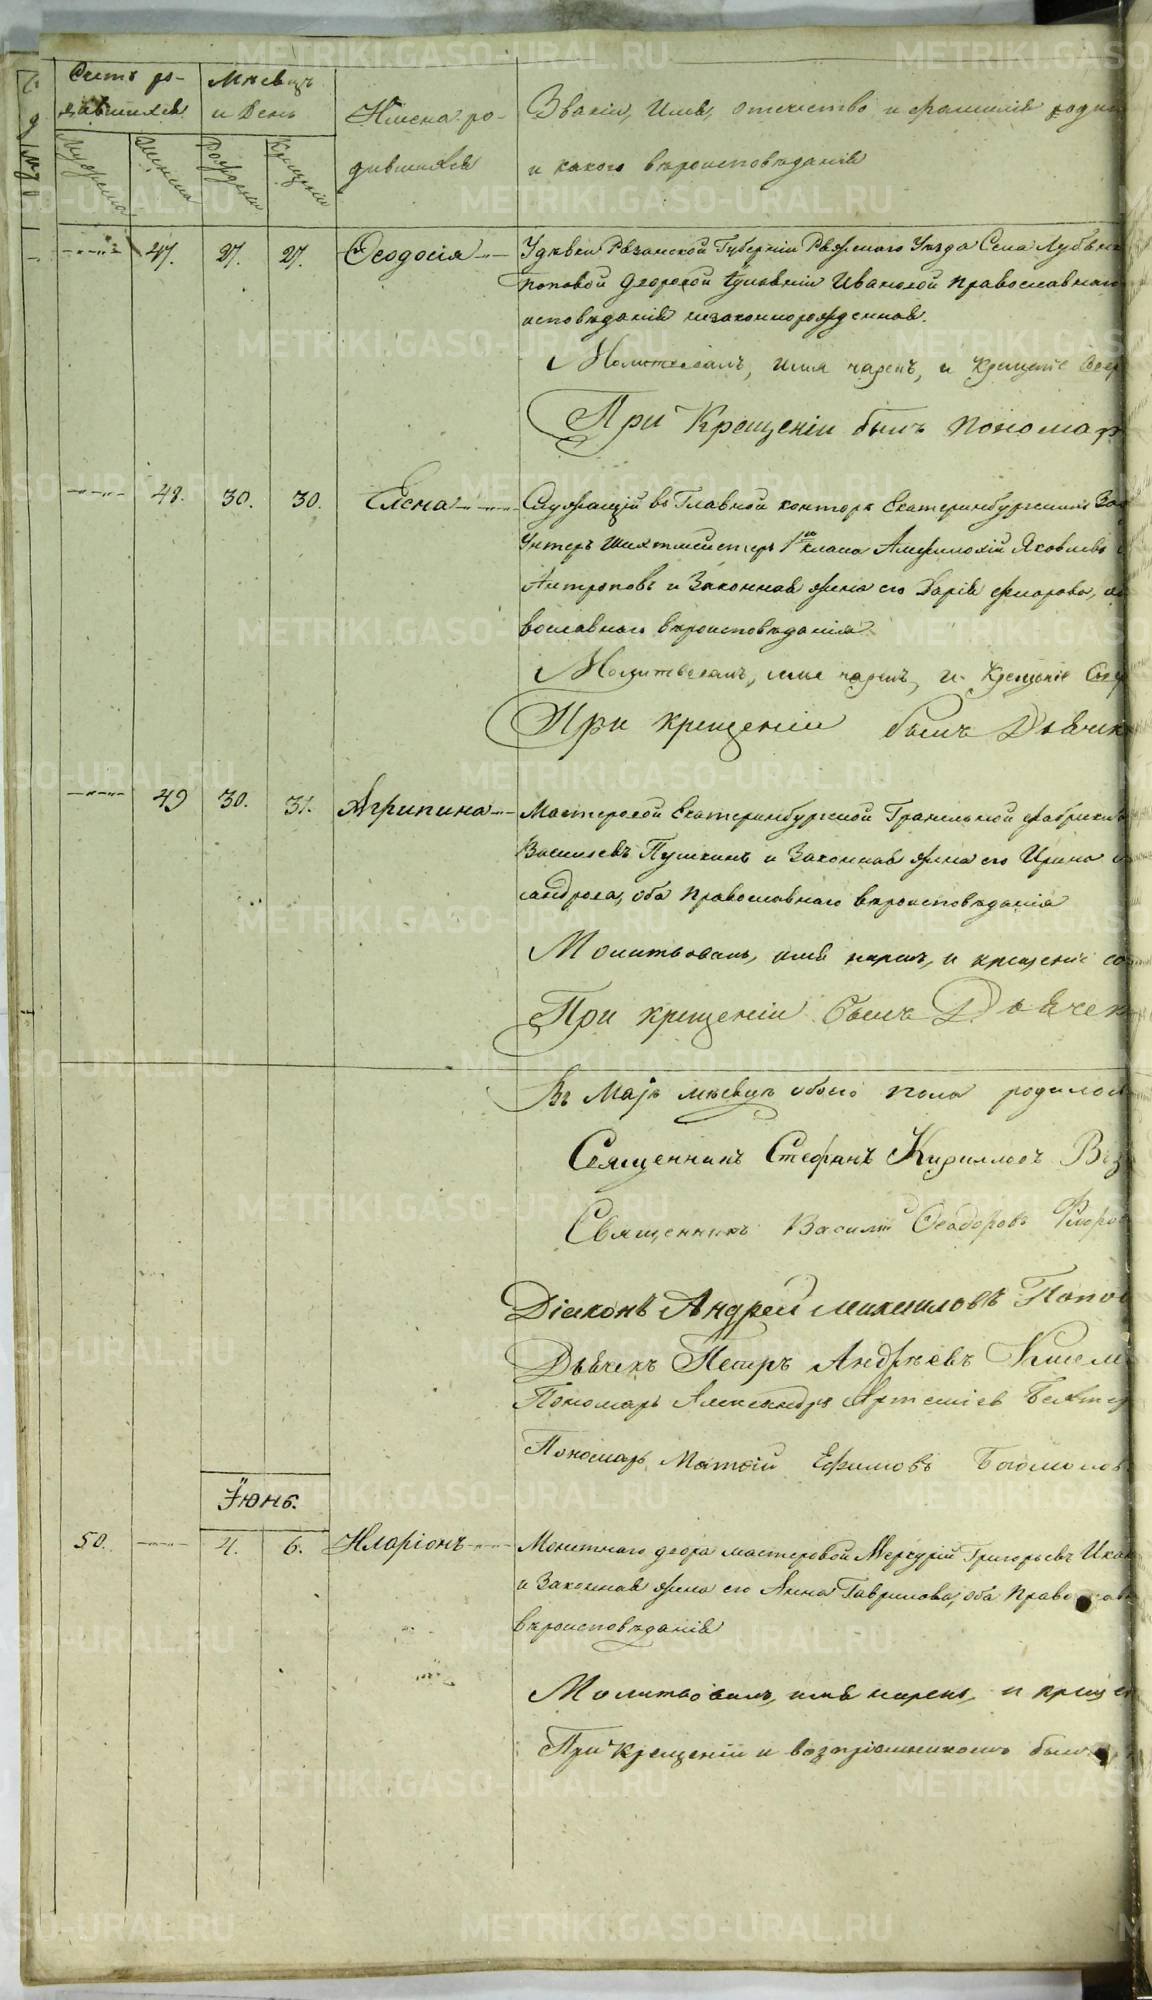 Счетъ ро-
дившихся
Мѣсяцъ
и День
Имена ро-
дившихся
Званіе, Имя, отечество и фамилія родит
и какого вѣроисповѣданія
Мужеска
Женска
Рожденія
Крещенія
47. 27. 27. Ѳеодосія
Рязанской Губерніи Ряжского Уѣзда Села
Ивановой Православнаго
исповѣданія незаконнорожденная.
Молитвовалъ, имя нарекъ, и Крещеніе Совер
При Крещеніи былъ Пономар
48. 30. 30. Елена
Служащій въ Главной конторѣ Екатеринбургскихъ Зав
Унтеръ Шихтмейстеръ 1го класа Амфилохій Яковлевъ
Антроповъ и Законная жена его Дарія
вославнаго вѣроисповѣданія
Молитвовалъ, имя нарекъ, и Крещеніе Совер
При крещеніи былъ Дьячек
49 30. 31. Агрипина
Мастеровой Екатеринбургской Гранильной фабрики
Васильевъ Пушкинъ и Законная жена его Ирина
сандрова, оба Православнаго вѣроисповѣданія
Молитвовалъ, имя нарекъ, и крещеніе со
При крещеніи былъ Дьячек
Въ Маіѣ мѣсяцѣ обоего пола родилос
Священникъ Стефанъ Кирилловъ
Священникъ Василій Ѳеодоровъ Флоров
Діаконъ Андрей Михаиловъ Попов
Дьячекъ Петръ Андрѣевъ
Пономарь Александръ Артеміев
Пономарь Матѳій Ефимовъ Богомолов
Іюнь.
50. 4. 6. Иларіонъ
Монетнаго двора мастеровой Меркурій Григорьевъ
и Законная жена его Анна Гаврилова, оба Православ
вѣроисповѣданія
Молитвовалъ, имя нарекъ, и крещен
При Крещеніи и воспріемникомъ былъ
METRIKI.GASO-URAL.RU